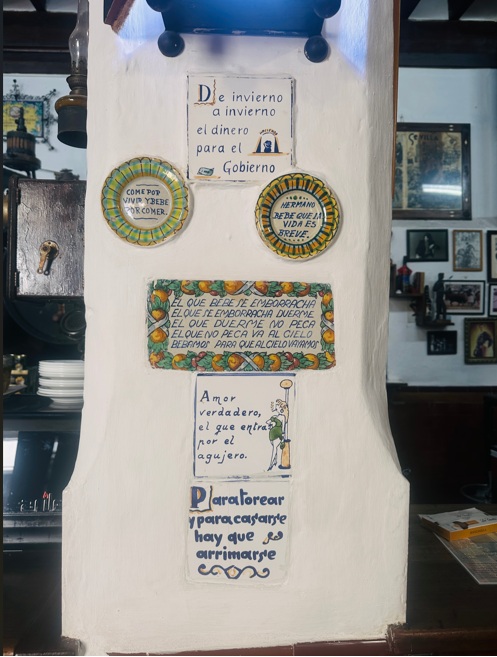 De invierno
a invierno
el dinero
para el
Gobierno
COME POR
VIVIR Y BEBE
POR COMER.
HERMANO
BEBE QUE LA
VIDA ES
BREVE.
EL QUE BEBE SE EMBORRACHA
EL QUE SE EMBORRACHA DUERME
EL QUE DUERME NO PECA
EL QUE NO PECA VA AL CIELO
BEBAMOS PARA QUE AL CIELO VAYAMOS
Amor
verdadero,
el que entra
por el
agujero.
Para torear
y para casarse
hay que
arrimarse